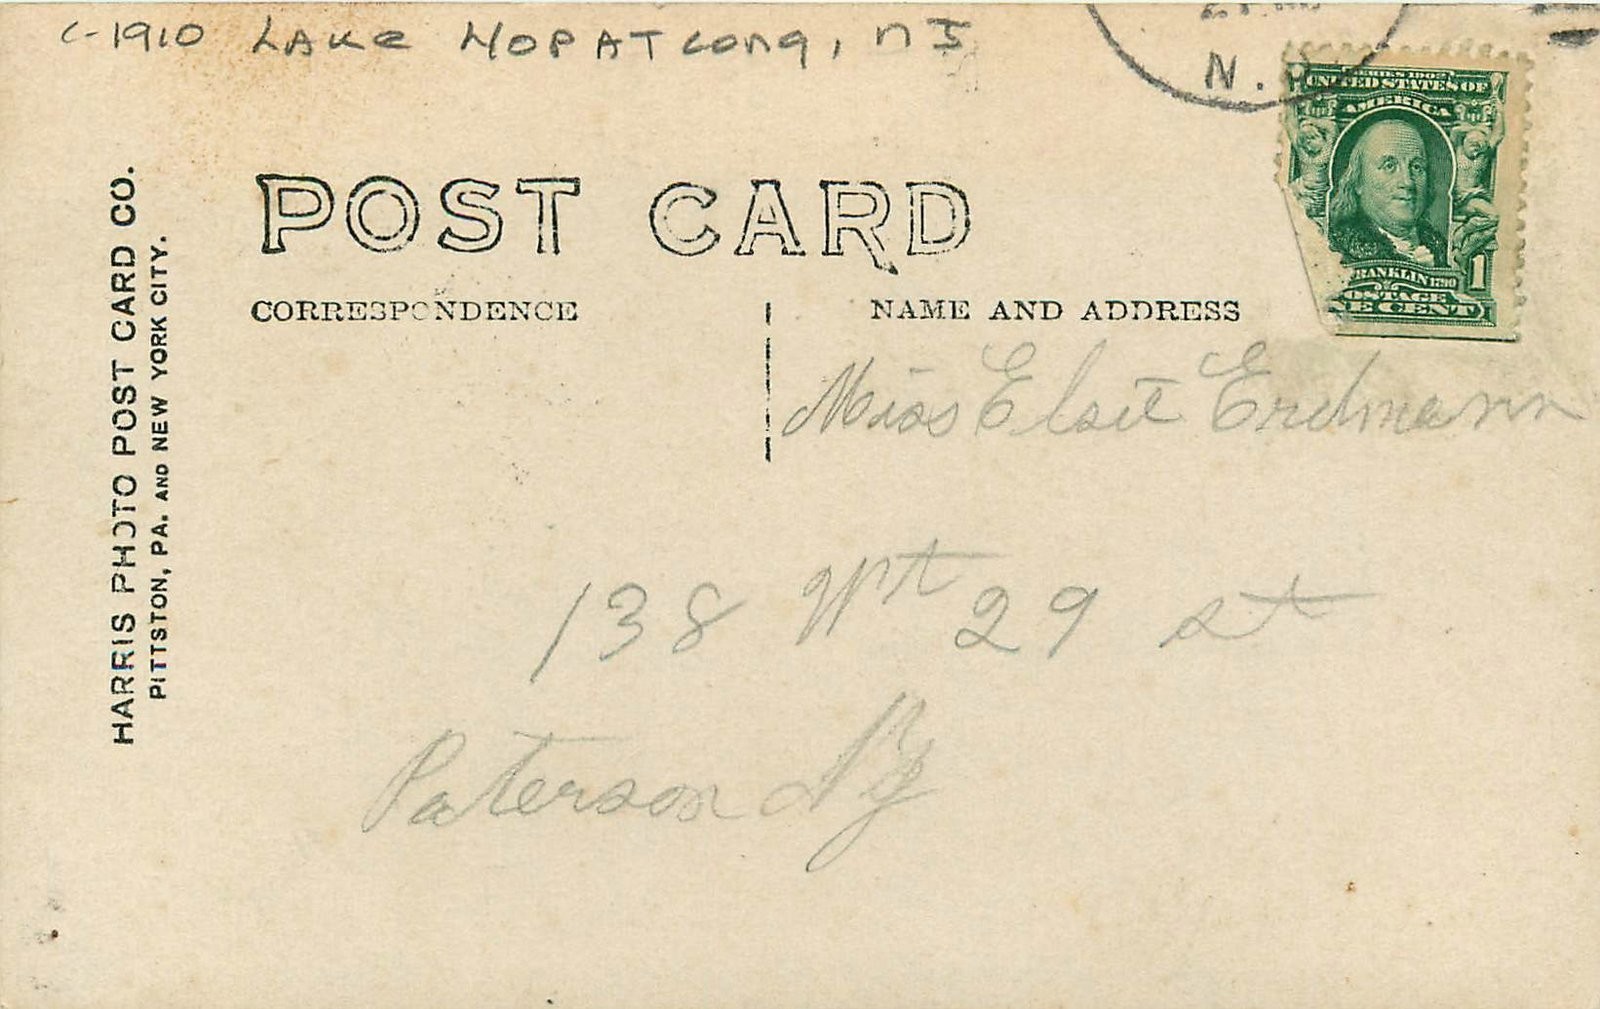 C-1910 LAKE HOPATCONG, NJ
N.
SERIES 1902
UNITED STATES OF
AMERICA
FRANKLIN 1790
1
POSTAGE
ONE CENT
POST CARD
CORRESPONDENCE
NAME AND ADDRESS
HARRIS PHOTO POST CARD CO.
PITTSTON, PA. AND NEW YORK CITY.
Miss Elsie Erdmann
138 29 st
Paterson NJ